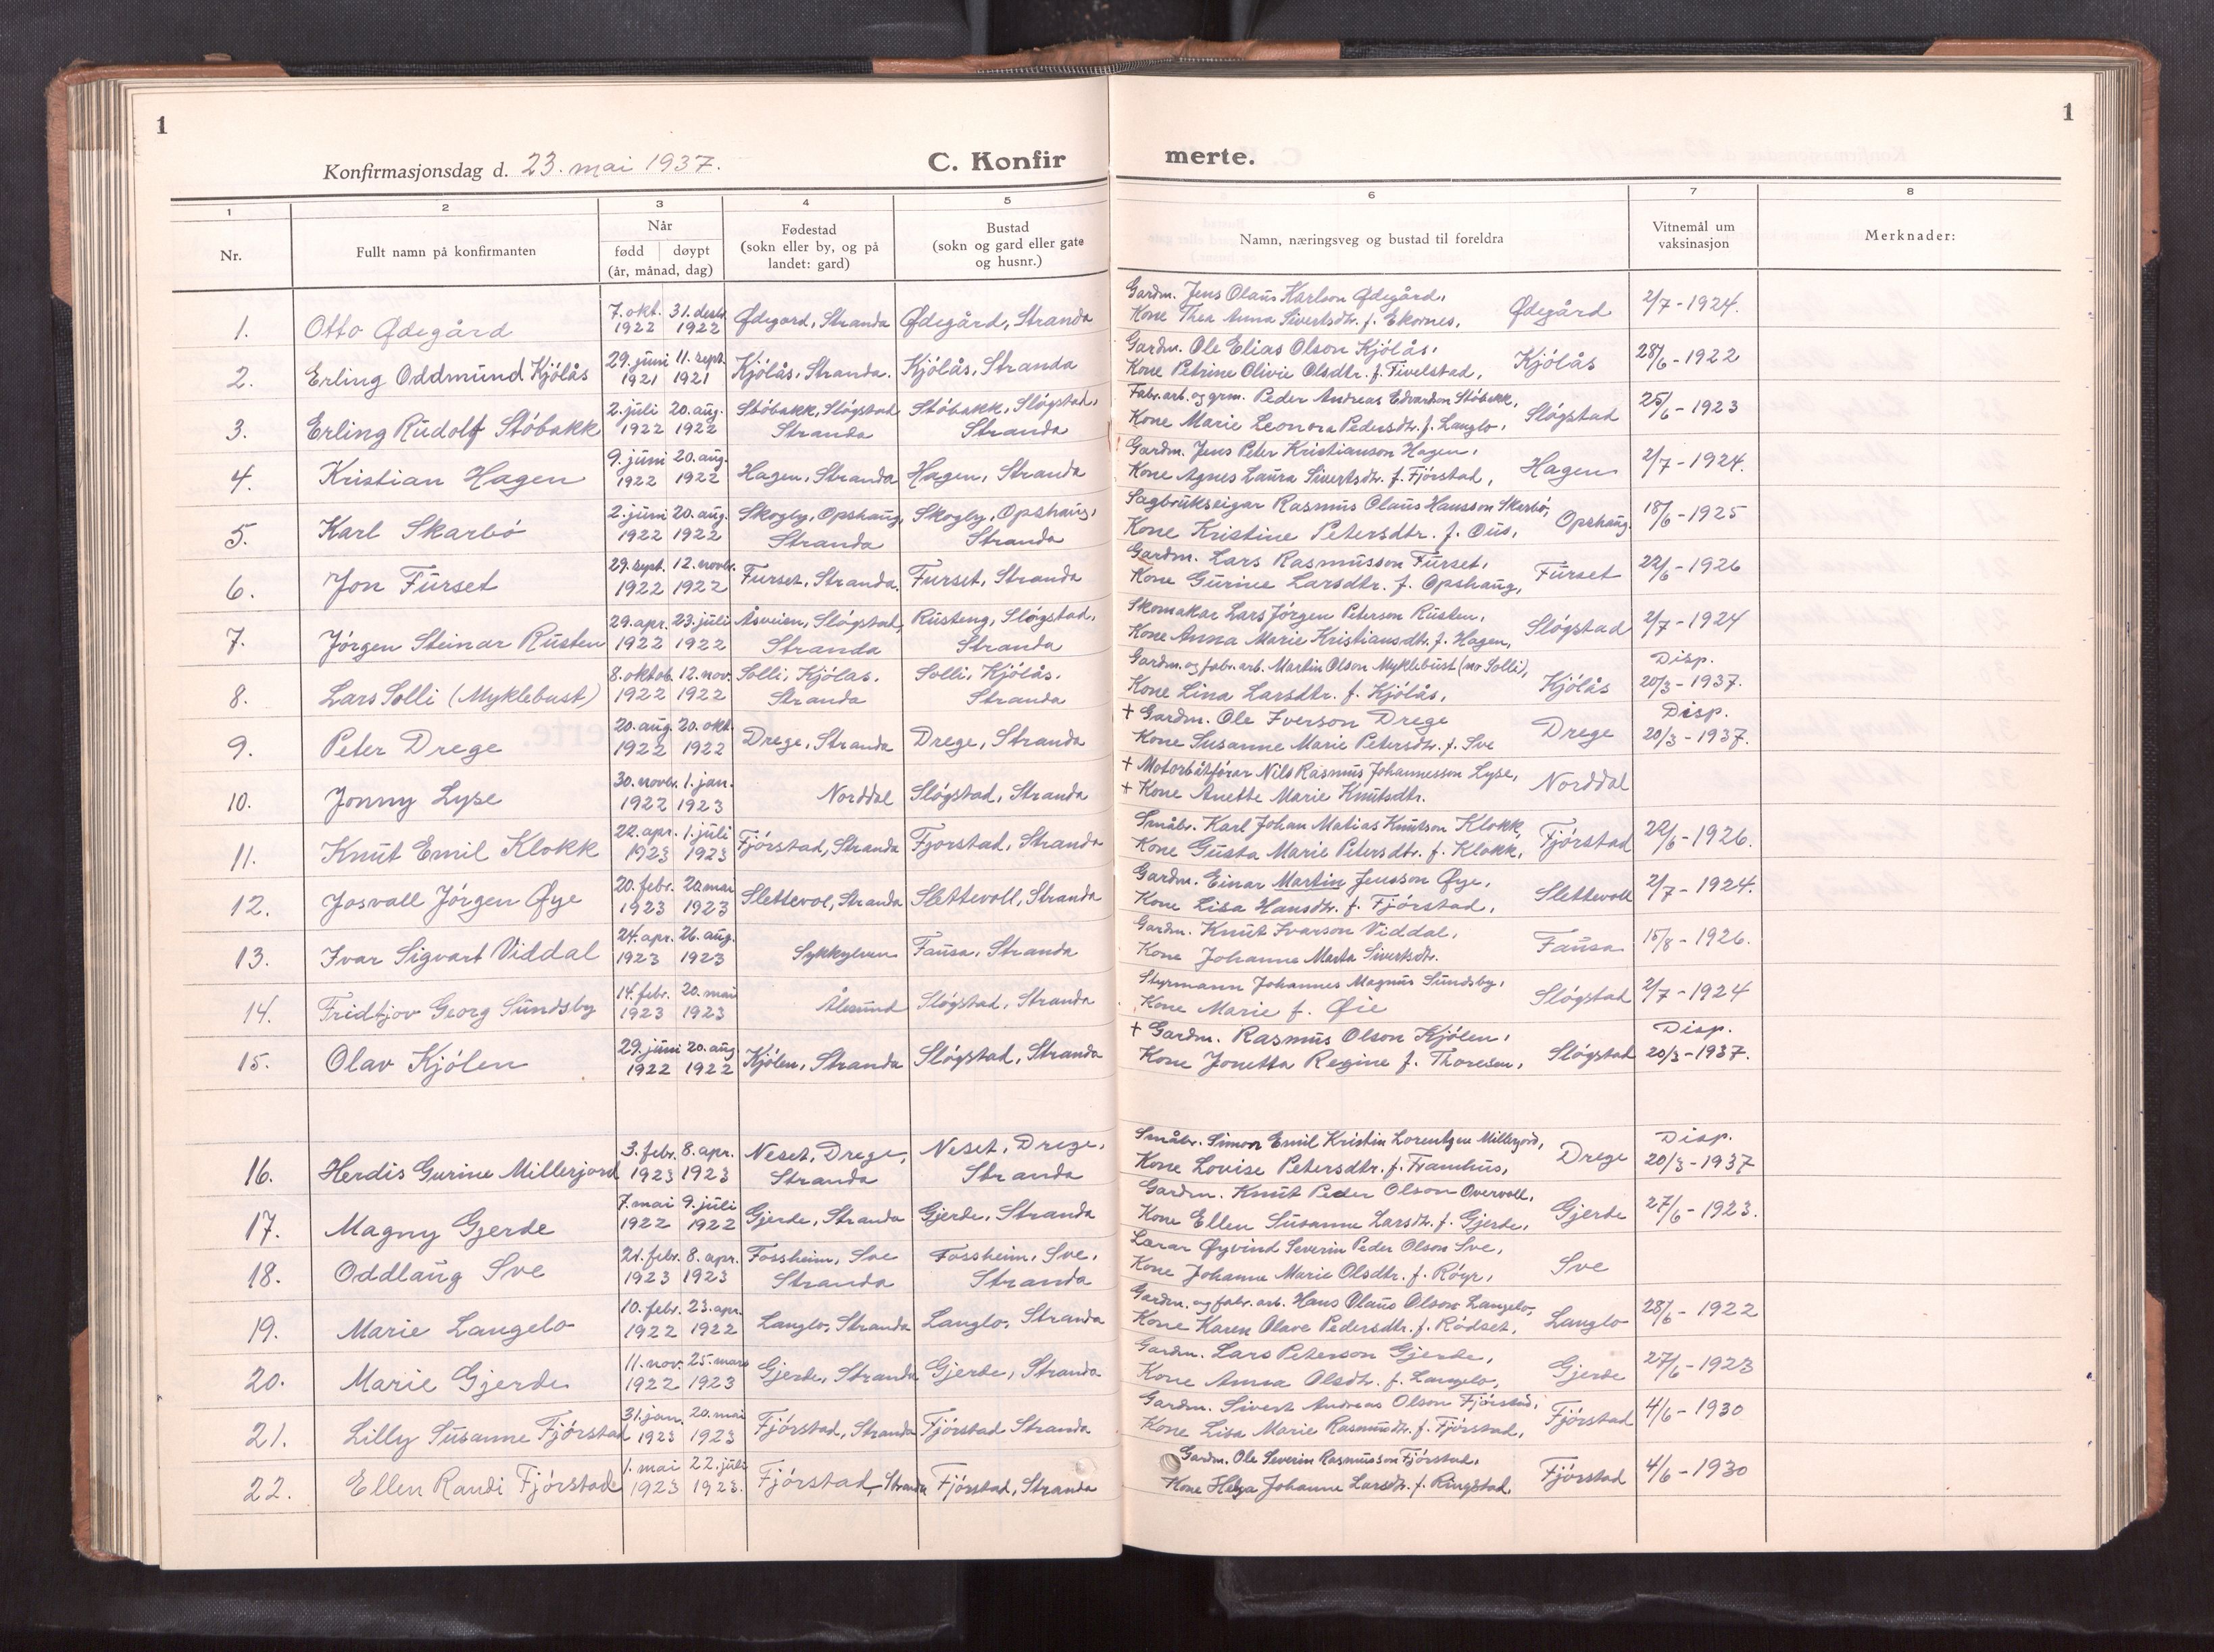 1
Konfirmasjonsdag d. 23. mai 1937.
C. Konfir
merte.
1
1 2 3 4 5 6 7 8
Nr.
Fullt namn på konfirmanten
Når
fødd døypt
(år, månad, dag)
Fødestad
(sokn eller by, og på
landet: gard)
Bustad
(sokn og gard eller gate
og husnr.)
Namn, næringsveg og bustad til foreldra
Vitnemål um
vaksinasjon
Merknader:
7. okt. 31. desbr. Gardm. Jens Olaus Karlson Ødegård,
1. Otto Ødegård 1922 1922 Ødegard, Stranda Ødegård, Stranda Kone Thea Anna Sivertsdtr. f. Ekornes, Ødegård 2/7 - 1924.
29. juni 11. sept. Gardm. Ole Elias Olson Kjólås,
2. Erling Oddmund Kjólås 1921 1921 Kjólås, Stranda. Kjólås, Stranda Kone Petrine Olivie Olsdtr. f. Tivelstad, Kjólås 28/6 - 1922
2. juli 20. aug. Stóbakk, Slógstad Stóbakk, Slógstad, Fabr.arb. og grm. Peder Andreas Edvardson Stóbakk,
3. Erling Rudolf Stóbakk 1922 1922 Stranda Stranda Kone Marie Leonora Pedersdtr. f. Langlo, Slógstad 25/6 - 1923
9. juni 20. aug. Gardm. Jens Peter Kristianson Hagen,
4. Kristian Hagen 1922 1922 Hagen, Stranda Hagen, Stranda Kone Agnes Laura Sivertsdtr. f. Fjórstad, Hagen 2/7 - 1924.
2. juni 20. aug. Skogly, Opshaug, Skogly, Opshaug, Sagbrukseigar Rasmus Olaus Hansson Skarbó,
5. Karl Skarbó 1922 1922 Stranda Stranda Kone Kristine Petersdtr. f. Ous, Opshaug 18/6 - 1925
29. sept. 12. novbr. Gardm. Lars Rasmusson Furset,
6. Jon Furset 1922 1922 Furset, Stranda. Furset, Stranda Kone Gurine Larsdtr. f. Opshaug, Furset 22/6 - 1926
29. apr. 23. juli Åsveien, Slógstad, Rusteng, Slógstad, Skomakar Lars Jórgen Peterson Rusten,
7. Jórgen Steinar Rusten 1922 1922 Stranda Stranda Kone Anna Marie Kristiansdtr. f. Hagen, Slógstad 2/7 - 1924
8. oktob. 12. nov. Solli, Kjólas, Solli, Kjólås, Gardm. og fabr. arb. Martin Olson Myklebust (no Solli), Disp.
8. Lars Solli (Myklebust) 1922 1922 Stranda Stranda Kone Lina Larsdtr. f. Kjólås, Kjólås 20/3 - 1937.
20. aug. 20. okt. + Gardm. Ole Iverson Drege Disp.
9. Peter Drege 1922 1922 Drege, Stranda Drege, Stranda Kone Susanne Marie Petersdtr. f. Sve Drege 20/3 - 1937.
30. novbr. 1. jan. + Motorbåtfórar Nils Rasmus Johannesson Lyse,
10. Jonny Lyse 1922 1923 Norddal Slógstad, Stranda + Kone Anette Marie Knutsdtr. Norddal
22. apr. 1. juli Småbr. Karl Johan Matias Knutson Klokk,
11. Knut Emil Klokk 1923 1923 Fjórstad, Stranda Fjorstad, Stranda Kone Gusta Marie Petersdtr. f. Klokk, Fjórstad 22/6 - 1926.
20. febr. 20. mai Gardm. Einar Martin Jensson Øye,
12. Josvall Jórgen Øye 1923 1923 Slettevol, Stranda Slettevoll, Stranda Kone Lisa Hansdtr. f. Fjórstad, Slettevoll 2/7 - 1924.
24. apr. 26. aug. Gardm. Knut Ivarson Viddal,
13. Ivar Sigvart Viddal 1923 1923 Sykkylven Fausa, Stranda Kone Johanne Marta Sivertsdtr. Fausa 15/8 - 1926.
14. febr. 20. mai Styrmann Johannes Magnus Sundsby,
14. Fridtjov Georg Sundsby 1923 1923 Ålesund Slógstad, Stranda Kone Marie f. Øie Slógstad 2/7 - 1924
29. juni 20. aug + Gardm. Rasmus Olson Kjólen, Disp.
15. Olav Kjólen 1922 1922 Kjólen, Stranda Slógstad, Stranda Kone Jonetta Regine f. Thoresen, Slógstad 20/3 - 1937.
3. febr. 8. apr. Neset, Drege, Neset, Drege, Småbr. Simon Emil Kristin Lorentzen Millerjord, Disp.
16. Herdis Gurine Millerjord 1923 1923 Stranda Stranda Kone Lovise Petersdtr. f. Framhus, Drege 20/3 - 1937
7. mai 9. juli Gardm. Knut Peder Olson Overvoll,
17. Magny Gjerde 1922 1922 Gjerde, Stranda Gjerde, Stranda Kone Ellen Susanne Larsdtr. f. Gjerde, Gjerde 27/6 - 1923.
21. febr. 8. apr. Fossheim, Sve Fossheim, Sve, Lærar Øyvind Severin Peder Olson Sve,
18. Oddlaug Sve 1923 1923 Stranda Stranda Kone Johanne Marie Olsdtr. f. Róyr, Sve
10. febr. 23. apr. Gardm. og fabr. arb. Hans Olaus Olson Langelo,
19. Marie Langelo 1922 1922 Langlo, Stranda Langlo, Stranda Kone Karen Olave Pedersdtr. f.Ródset, Langlo 28/6 - 1922
11. nov. 25. mars Gardm. Lars Peterson Gjerde,
20. Marie Gjerde 1922 1923 Gjerde, Stranda Gjerde, Stranda Kone Anna Olsdtr. f. Langelo, Gjerde 27/6 - 1923
31. jan. 20. mai Gardm. Sivert Andreas Olson Fjórstad,
21. Lilly Susanne Fjórstad 1923 1923 Fjórstad, Stranda Fjórstad Stranda Kone Lisa Marie Rasmusdtr. f. Fjórstad, Fjórstad 4/6 - 1930
1. mai 22. juli Gardm. Ole Severin Rasmusson Fjórstad,
22. Ellen Randi Fjórstad 1923 1923. Fjórstad, Stranda Fjórstad, Stranda Kone Helga Johanne Larsdtr. f. Ringstad, Fjórstad 4/6 - 1930